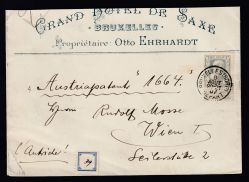 GRAND HOTEL DE SAXE
BRUXELLES
Propriétaire: Otto EHRHARDT
"Austriapatents 1664."
Herrn Rudolf Mosse
Wien I
Seilerstätte 2